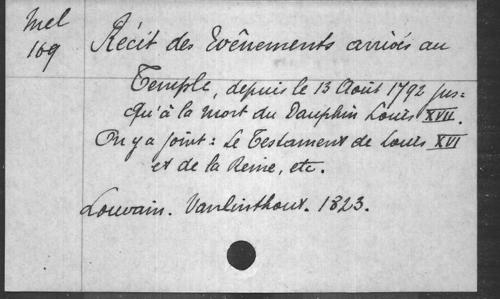 Mel
169
Récit des Evênements arrivés au
Temple, depuis le 13 Août 1792 jus=
qu'à la mort du Dauphin Louis XVII.
On y a joint : Le Testament de Louis XVI
et de la Reine, etc.
Louvain. Vanlinthout. 1823.